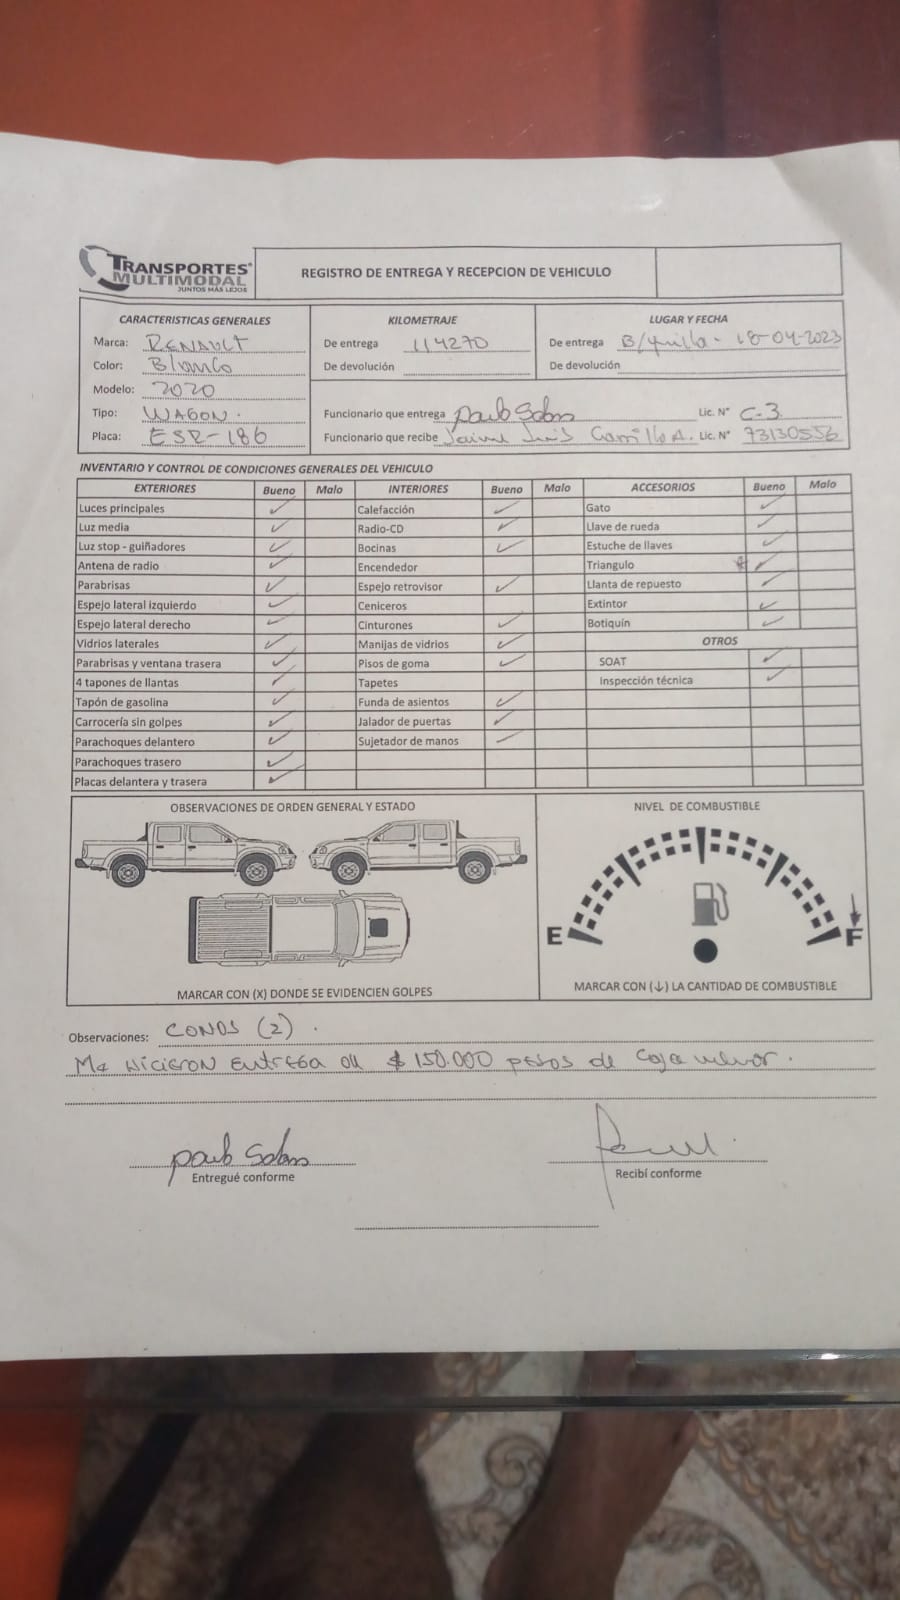 TRANSPORTES®
MULTIMODAL
JUNTOS MÁS LEJOS
REGISTRO DE ENTREGA Y RECEPCION DE VEHICULO
CARACTERISTICAS GENERALES
Marca: RENAULT
Color: Blanco
Modelo: 2020
Tipo: WAGON.
Placa: ESR-186
KILOMETRAJE
De entrega 114270
De devolución
LUGAR Y FECHA
De entrega B/quilla - 18-04-2023
De devolución
Funcionario que entrega Lic. N° C-3
Funcionario que recibe Jaime Luis Carrillo A. Lic. N° 73130556
INVENTARIO Y CONTROL DE CONDICIONES GENERALES DEL VEHICULO
EXTERIORES Bueno Malo INTERIORES Bueno Malo ACCESORIOS Bueno Malo
Luces principales ✓ Calefacción ✓ Gato ✓
Luz media ✓ Radio-CD ✓ Llave de rueda ✓
Luz stop - guiñadores ✓ Bocinas ✓ Estuche de llaves ✓
Antena de radio ✓ Encendedor Triangulo ✓
Parabrisas ✓ Espejo retrovisor ✓ Llanta de repuesto ✓
Espejo lateral izquierdo ✓ Ceniceros Extintor ✓
Espejo lateral derecho ✓ Cinturones ✓ Botiquín ✓
Vidrios laterales ✓ Manijas de vidrios ✓ OTROS
Parabrisas y ventana trasera ✓ Pisos de goma ✓ SOAT ✓
4 tapones de llantas ✓ Tapetes Inspección técnica ✓
Tapón de gasolina ✓ Funda de asientos ✓
Carrocería sin golpes ✓ Jalador de puertas ✓
Parachoques delantero ✓ Sujetador de manos ✓
Parachoques trasero ✓
Placas delantera y trasera ✓
OBSERVACIONES DE ORDEN GENERAL Y ESTADO
MARCAR CON (X) DONDE SE EVIDENCIEN GOLPES
NIVEL DE COMBUSTIBLE
E F
MARCAR CON (↓) LA CANTIDAD DE COMBUSTIBLE
Observaciones: CONOS (2).
Me hicieron entrega de $ 150.000 pesos de caja menor.
Entregué conforme
Recibí conforme